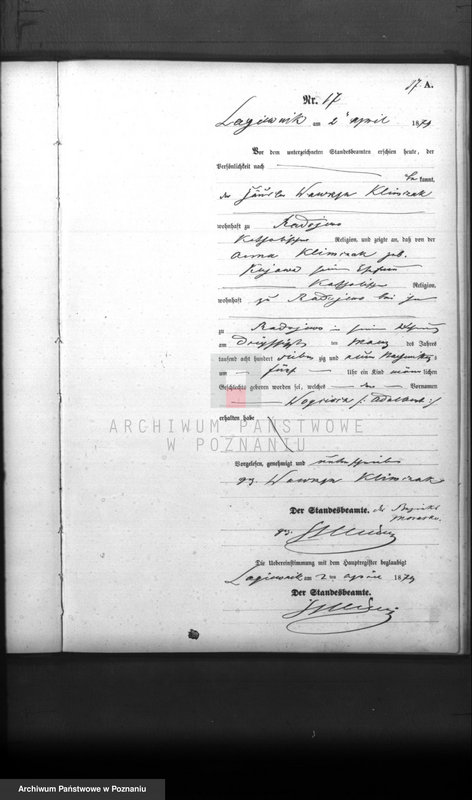 17. A.
Nr. 17
Lagiewnik am 2 april 1879
Vor dem unterzeichneten Standesbeamten erschien heute, der
Persönlichkeit nach
be kannt,
der Häusler Wawrzyn Klimczak
wohnhaft zu Radojewo
Katholischer Religion, und zeigte an, daß von der
Anna Klimczak geb.
Kujawa seiner Ehefrau
Katholischer Religion,
wohnhaft zu Radojewo bei ihm
zu Radojewo in seiner Wohnung
am dreißigsten ten Maerz des Jahres
tausend acht hundert sieben zig und neun Nachmittags
um fünf Uhr ein Kind männ lichen
Geschlechts geboren worden sei, welches den Vornamen
Woyciech /: Adalbert :/
erhalten habe
ARCHIWUM PAŃSTWOWE
W POZNANIU
Vorgelesen, genehmigt und unterschrieben
gez. Wawrzyn Klimczak
Der Standesbeamte. des Bezirks
Morasko.
gez.
Die Uebereinstimmung mit dem Hauptregister beglaubigt
Lagiewnik am 2 ten april 1879
Der Standesbeamte.
Archiwum Państwowe w Poznaniu